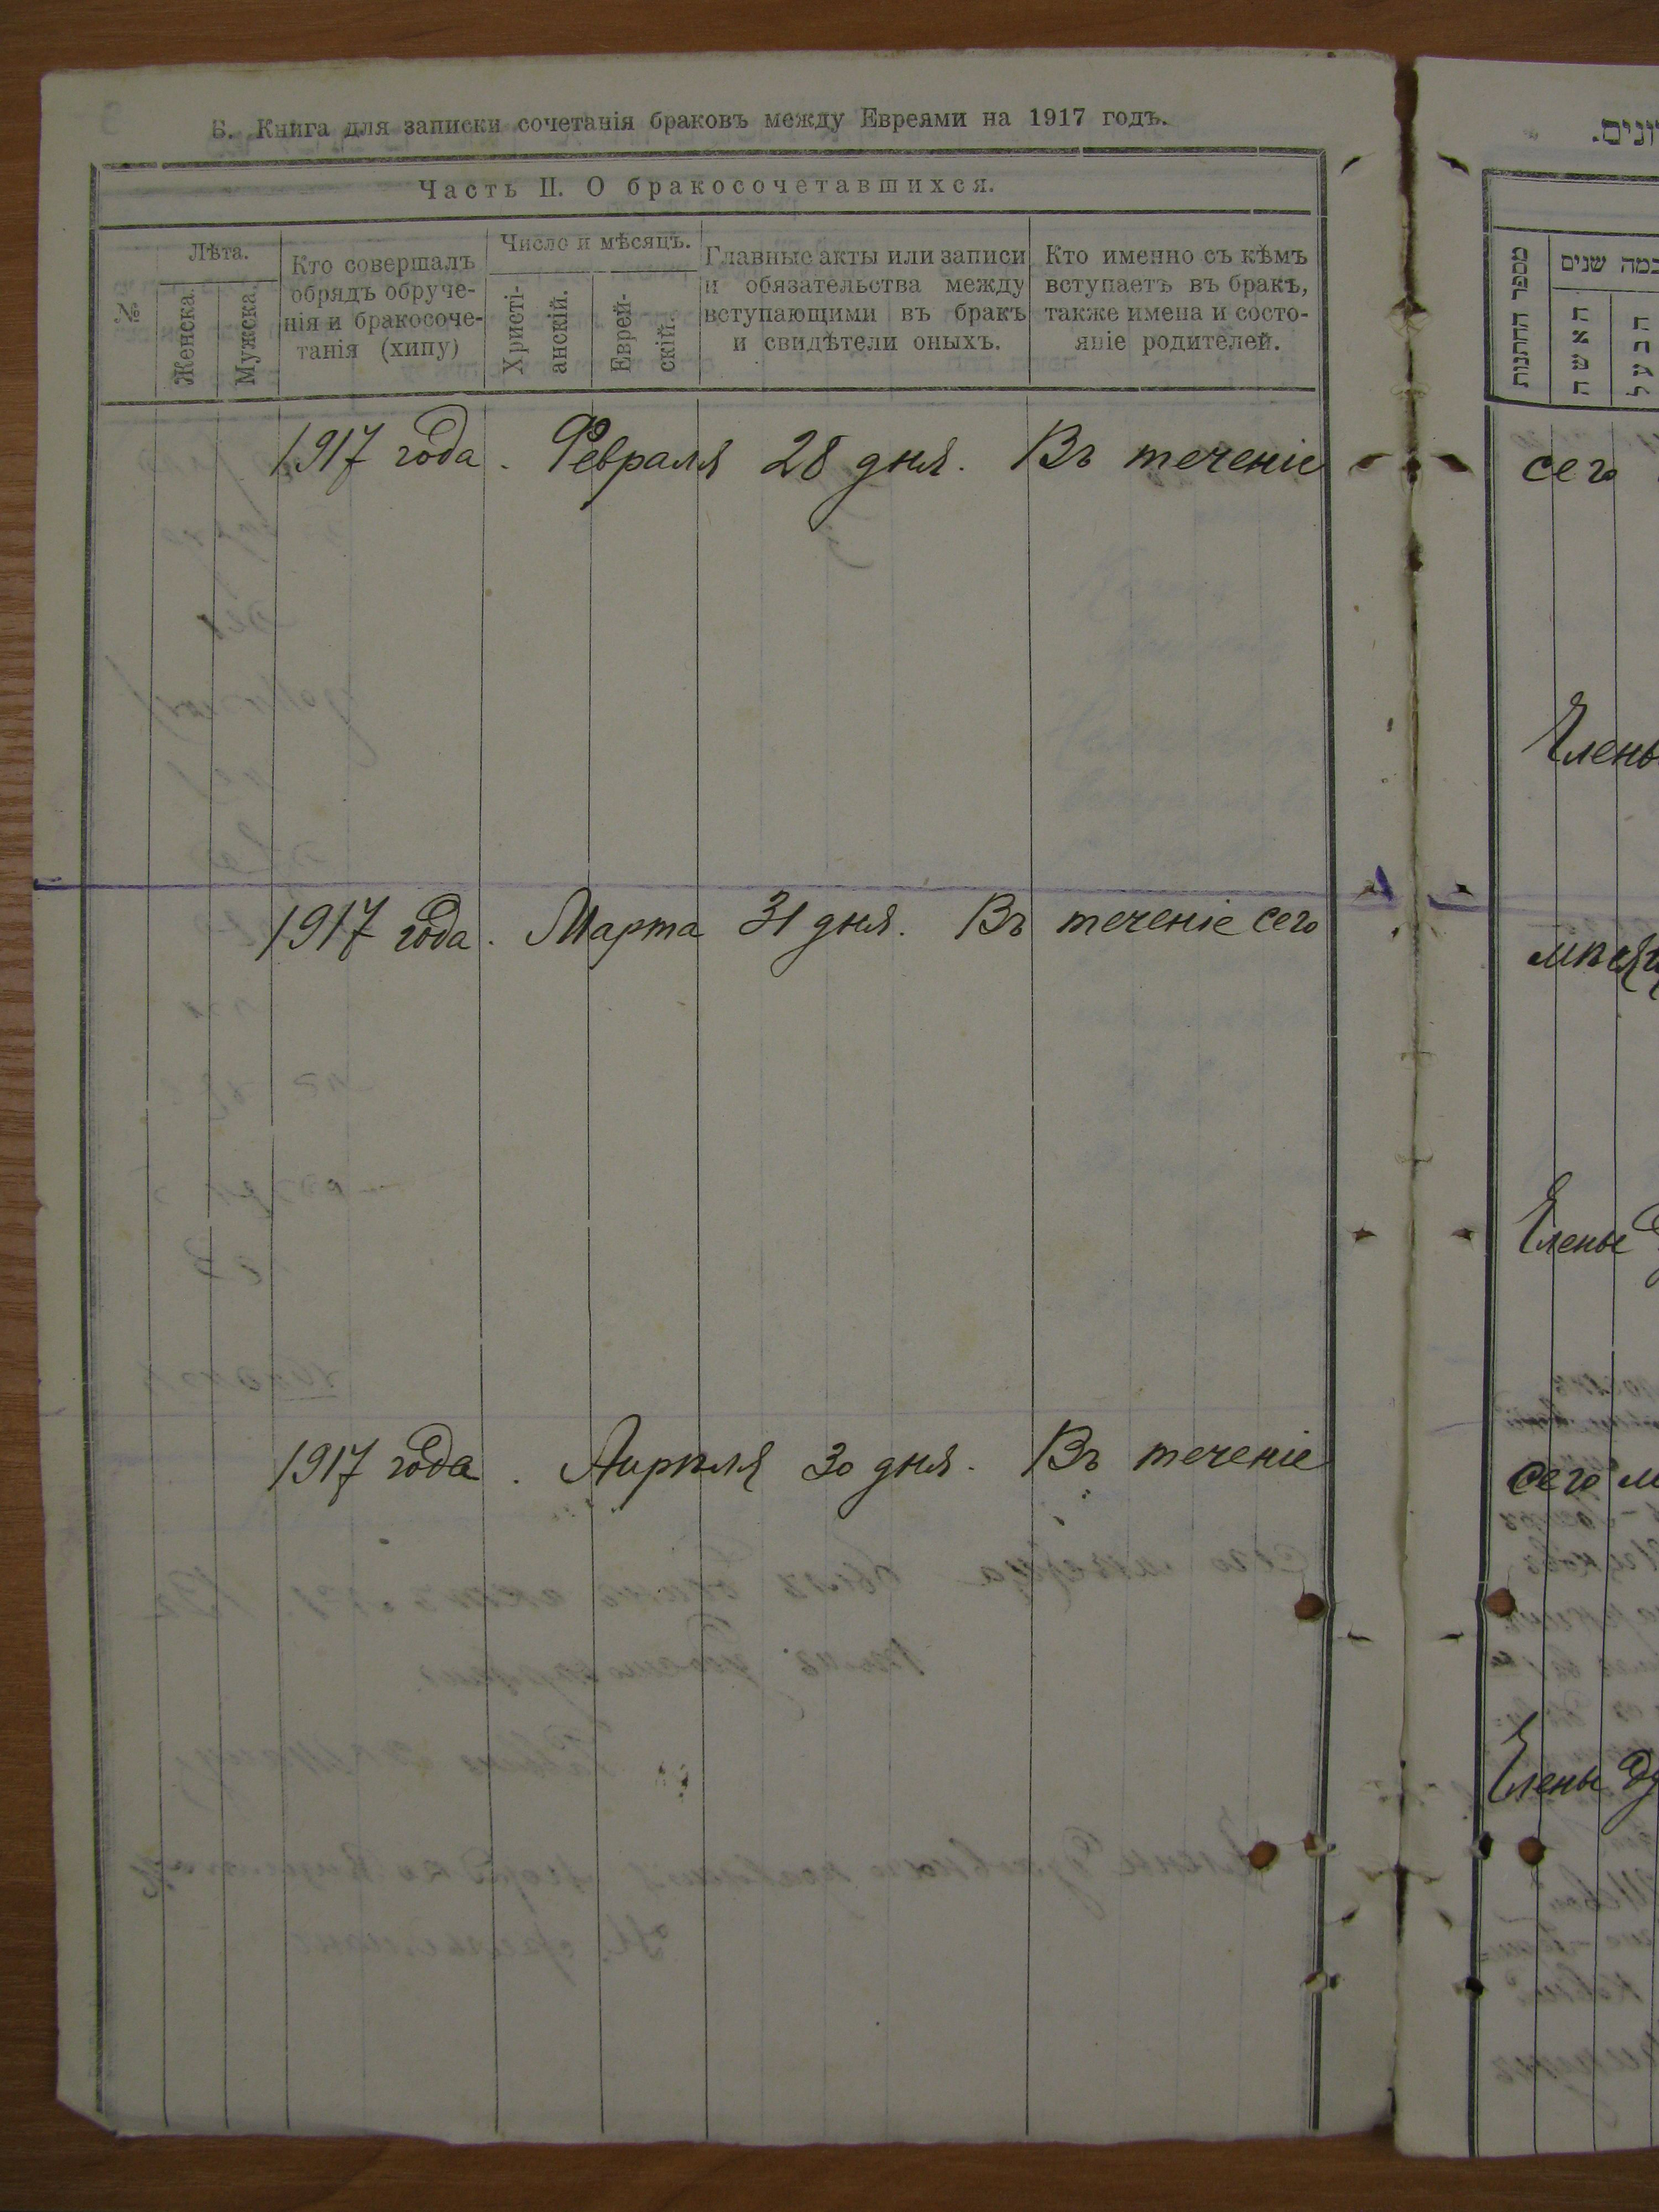 Б. Книга для записки сочетанія браковъ между Евреями на 1917 годъ.
Часть II. О бракосочетавшихся.
№
Лѣта.
Женска.
Мужска.
Кто совершалъ
обрядъ обруче-
нія и бракосоче-
танія (хипу)
Число и мѣсяцъ.
Христі-
анскій.
Еврей-
скій.
Главные акты или записи
и обязательства между
вступающими въ бракъ
и свидѣтели оныхъ.
Кто именно съ кѣмъ
вступаетъ въ бракъ,
также имена и состо-
яніе родителей.
1917 года. Февраля 28 дня. Въ теченіе
1917 года. Марта 31 дня. Въ теченіе сего
1917 года. Апрѣля 30 дня. Въ теченіе
מספר החתונות
שנים
האשה
הבעל
сего
Члены
Члены
сего
Члены